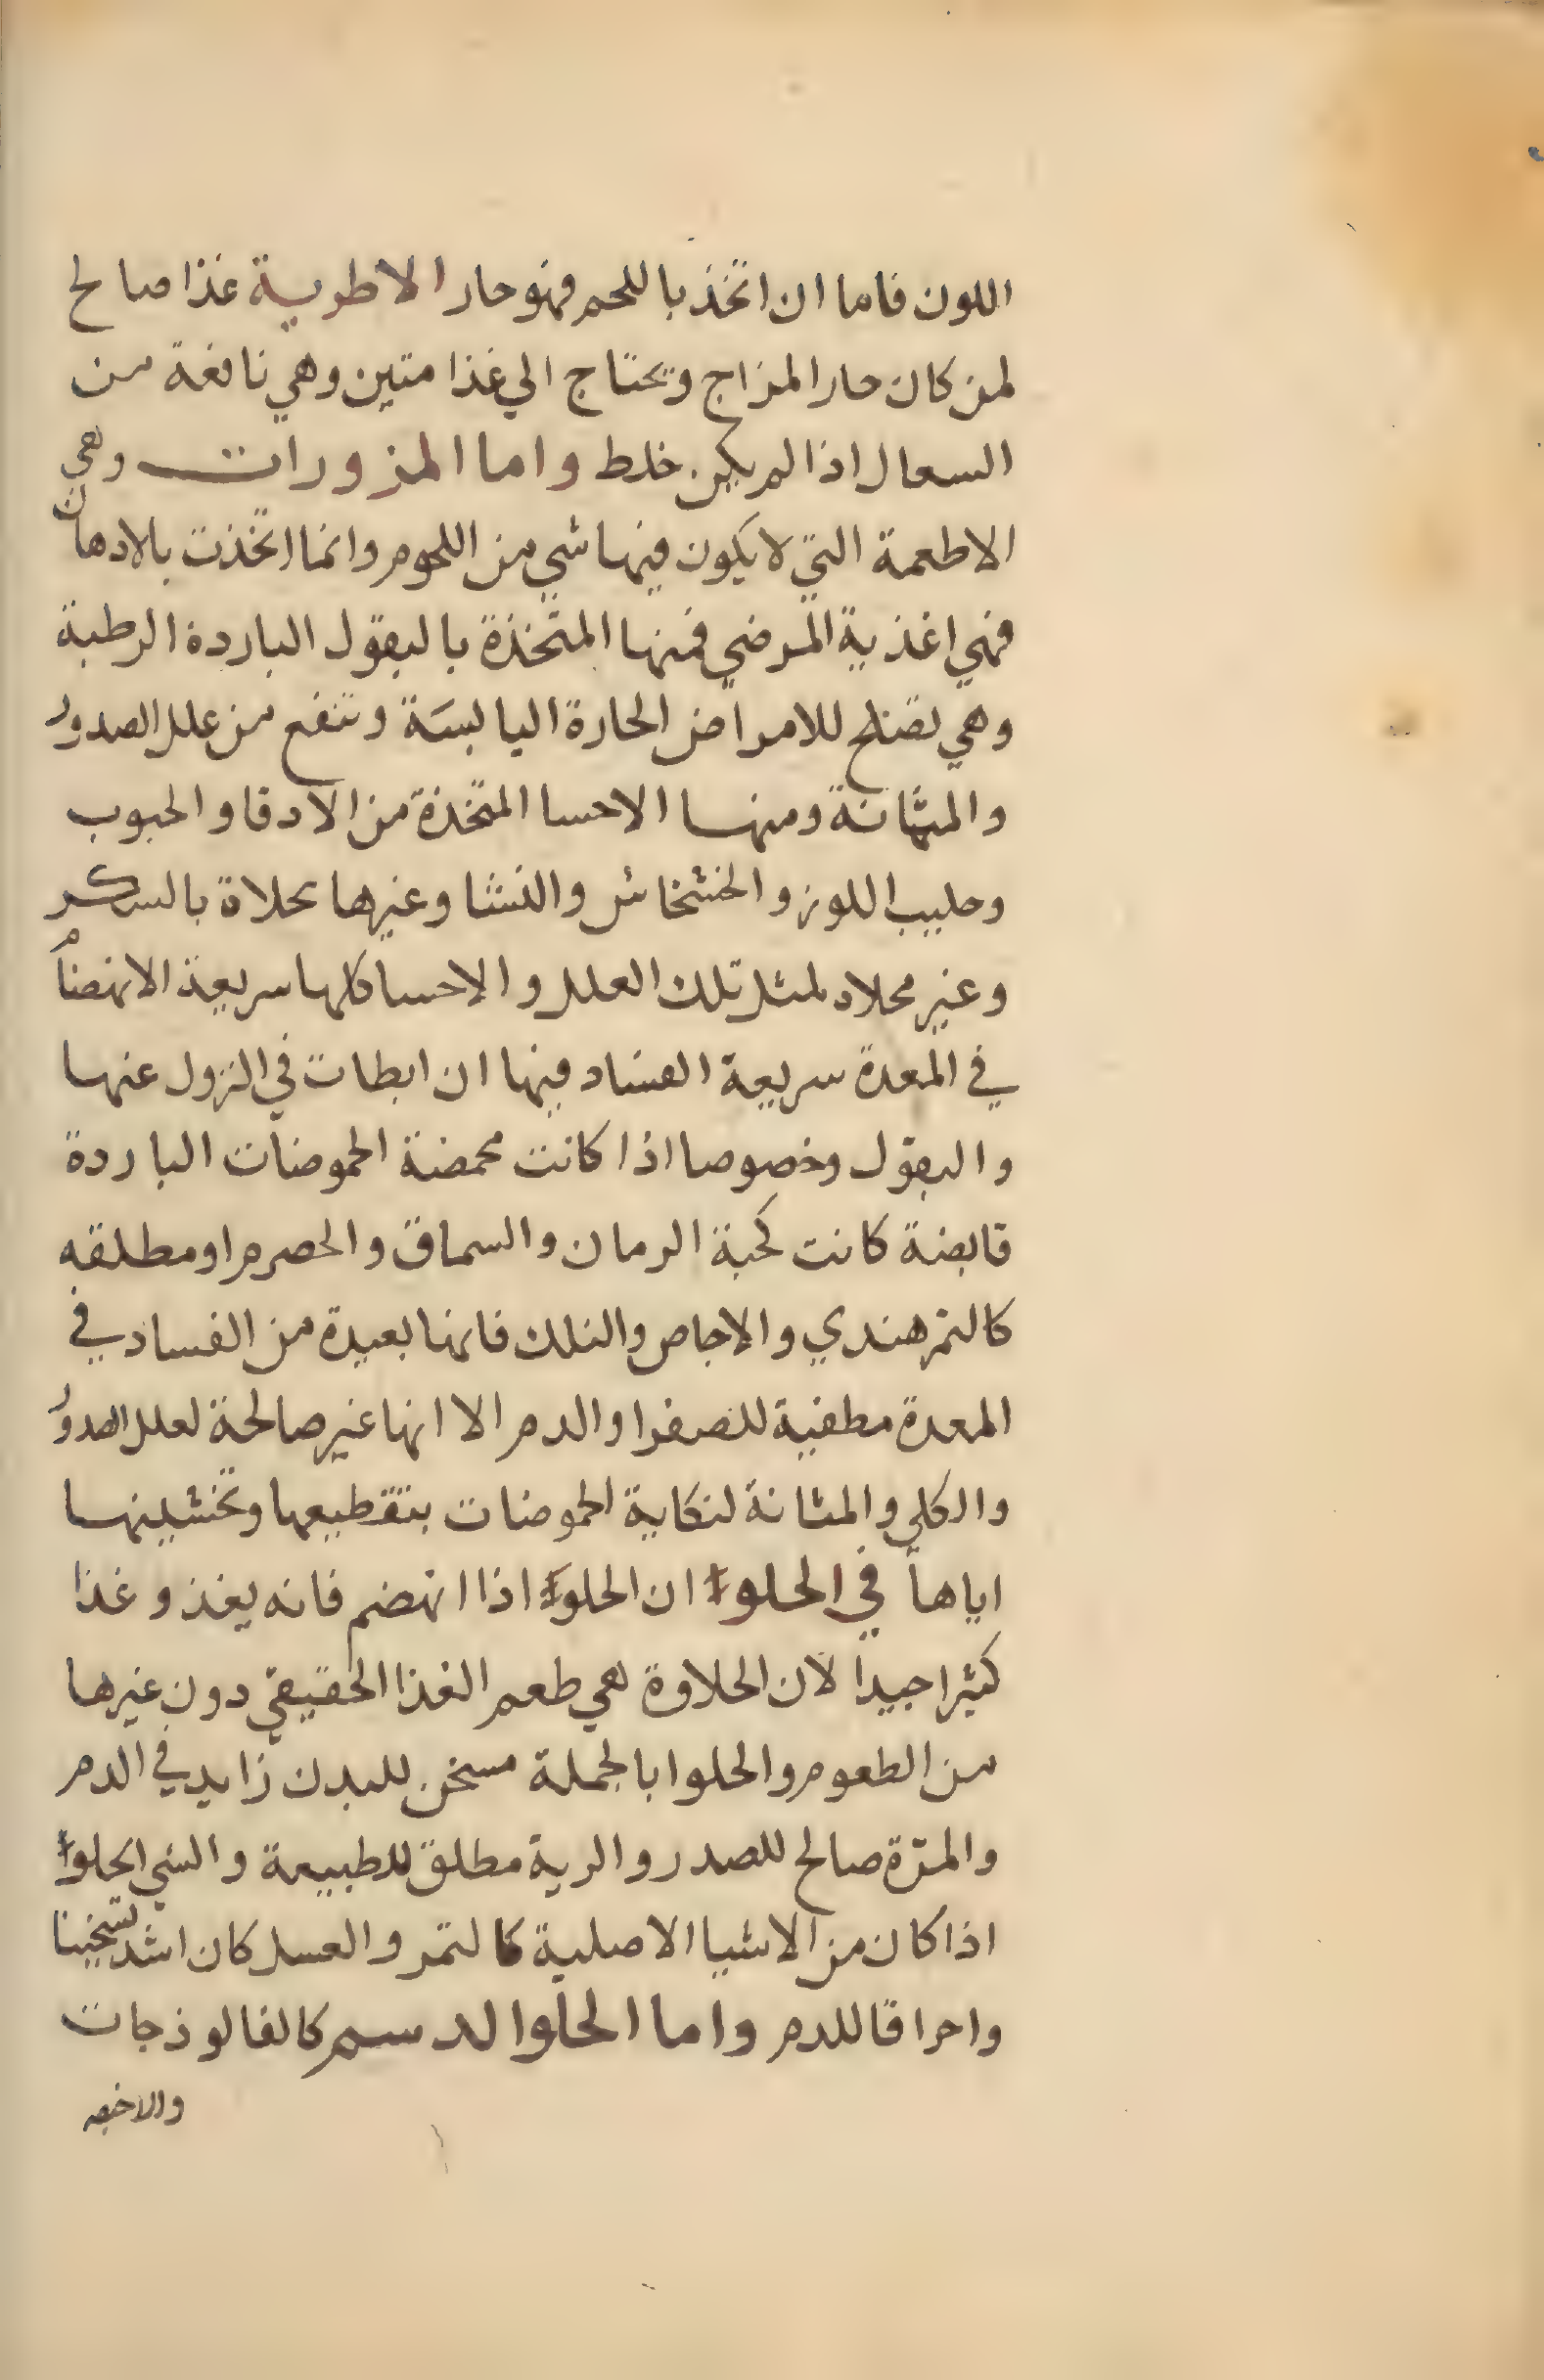 اللون فاما ان اتخذ باللحم فهو حار الاطرية غذا صالح
لمن كان حار المزاج ويحتاج الي غذا متين وهي نافعة من
السعال اذا لم يكن خلط واما المزورات وهي
الاطعمة التي لا يكون فيها شي من اللحوم وانما اتخذت بالادهان
فهي اغذية المرضي فمنها المتخذة بالبقول الباردة الرطبة
وهي تصلح للامراض الحارة اليابسة وتنفع من علل الصدور
والمثانة ومنها الاحسا المتخذة من الادقا والحبوب
وحليب اللوز والخشخاش والنشا وغيرها محلاة بالسكر
وغير محلاه لمثل تلك العلل والاحسا كلها سريعة الانهضام
في المعدة سريعة الفساد فيها ان ابطات في النزول عنها
والبقول وخصوصا اذا كانت محمضة الحموضات الباردة
قابضة كانت كحبة الرمان والسماق والحصرم او مطلقه
كالتمر هندي والاجاص والنلك فانها بعيدة من الفساد في
المعدة مطفية للصفرا والدم الا انها غير صالحة لعلل الصدور
والكلي والمثانة لنكاية الحموضات بتقطيعها وتخشينها
اياها في الحلوا ان الحلوا اذا انهضم فانه يغذو غذا
كثيرا جيدا لان الحلاوة هي طعم الغذا الحقيقي دون غيرها
من الطعوم والحلوا بالجملة مسخن للبدن زايد في الدم
والمرة صالح للصدر والرية مطلق للطبيعة والشي الحلوا
اذا كان من الاشيا الاصلية كالتمر والعسل كان اشد تسخينا
واحراقا للدم واما الحلوا الدسم كالفالوذجات
والاخبصه